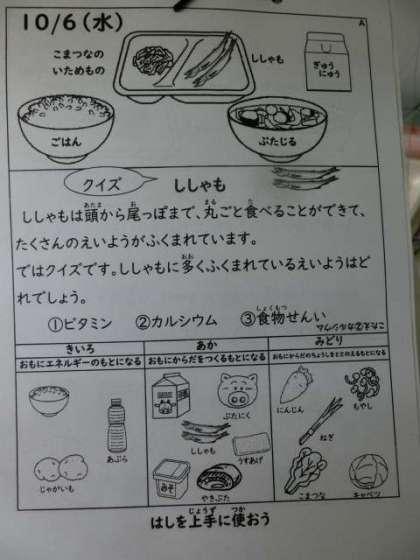 10/6(水)
A
こまつなの
いためもの
ししゃも
ぎゅう
にゅう
ごはん
ぶたじる
クイズ
ししゃも
ししゃもは頭から尾っぽまで、丸ごと食べることができて、
たくさんのえいようがふくまれています。
ではクイズです。ししゃもに多くふくまれているえいようはど
れでしょう。
①ビタミン ②カルシウム ③食物せんい
きいろ
おもにエネルギーのもとになる
あか
おもにからだをつくるもとになる
みどり
おもにからだのちょうしをととのえるもとになる
あぶら
じゃがいも
ぶたにく
ししゃも
うすあげ
みそ
やきぶた
にんじん
もやし
ねぎ
こまつな
キャベツ
はしを上手に使おう